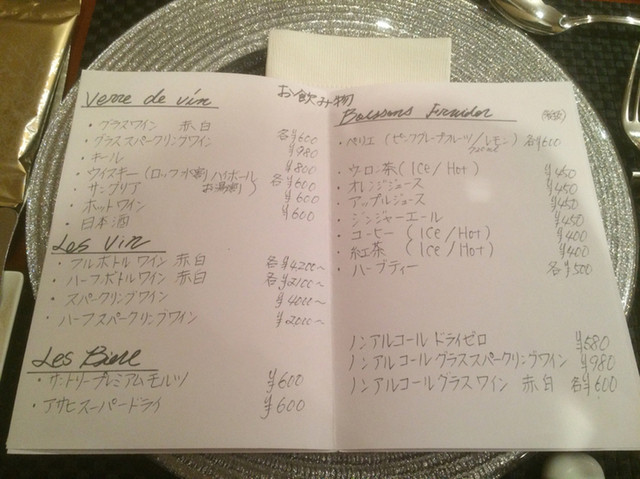 Verre de vin
お飲み物
・グラスワイン 赤 白 各¥600
・グラススパークリングワイン ¥980
・キール ¥800
・ウイスキー(ロック 水割 ハイボール お湯割) 各¥600
・サングリア ¥600
・ホットワイン ¥600
・日本酒
Les Vin
・フルボトルワイン 赤 白 各¥4200〜
・ハーフボトルワイン 赤白 各¥2100〜
・スパークリングワイン ¥4000〜
・ハーフスパークリングワイン ¥2000〜
Les Biere
・サントリープレミアムモルツ ¥600
・アサヒスーパードライ ¥600
Boissons
・ペリエ(ピンクグレープフルーツ/レモン) 各¥600
・ウーロン茶(Ice/Hot) ¥450
・オレンジジュース ¥450
・アップルジュース ¥450
・ジンジャーエール ¥450
・コーヒー (Ice/Hot) ¥400
・紅茶 (Ice/Hot) ¥400
・ハーブティー 各¥500
ノンアルコール ドライゼロ ¥580
ノンアルコールグラススパークリングワイン ¥980
ノンアルコールグラスワイン 赤 白 各¥600